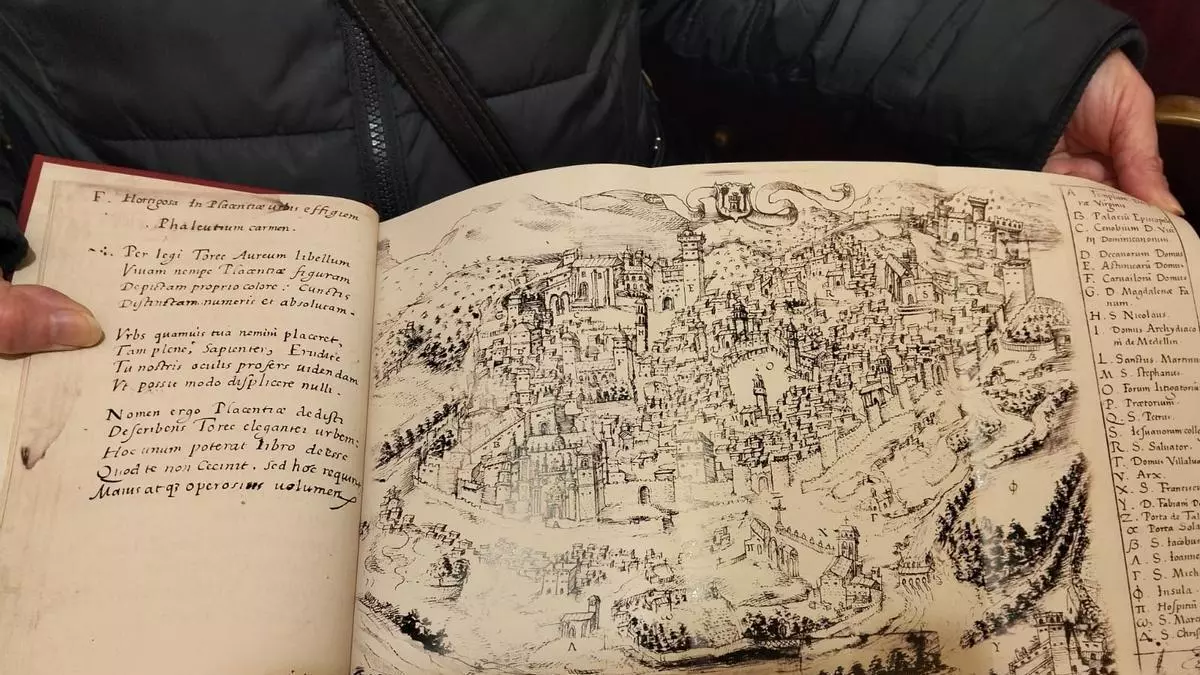 F. Hortigosa In Placentiæ urbis effigiem
Phaleutium carmen.
Per legi Toree Aureum libellum
Viuam nempe Placentiæ figuram
Depictam proprio colore: Cunctis
Distinctam numeris et absolutam.
Vrbs quamuis tua nemini placeret,
Tam plene, Sapienter, Erudite
Tu nostris oculis profers uidendam
Vt possit modo displicere nulli.
Nomen ergo Placentiæ dedisti
Describens Toree eleganter urbem:
Hoc unum poterat libro deesse
Quod te non Cecinit. Sed hoc
Maius atqȝ operosius volumen
A. Templum
ræ Virginis
B. Palaciũ Episcop
C. Cenobium D. Vin
tij Dominicanorum.
D. Decanorum Domus
E. Domus
F. Caruailorũ Domus
G. D Magdalenæ Fa
num.
H. S Nicolaus.
I. Domus Archydiaco
ni de Medellin
L. Sanctus Martinu
M. S. Stephanus.
O Forum litigatoriũ
P. Prætorium.
Q. S. Petrus.
S. Iesuanorum colle
R. S. Saluator.
T. Domus Villalu
V. Arx.
X. S. Francisc
Y. D. Fabiani D
Z. Porta de Tal
α Porta Sola
β S. Iacobu
λ S. Ioanne
Γ S. Mich
ϕ Insula
π Hospitiũ
ω S. Marc
Δ S. Chris
O
β
ϕ
N
Γ
Λ
Y